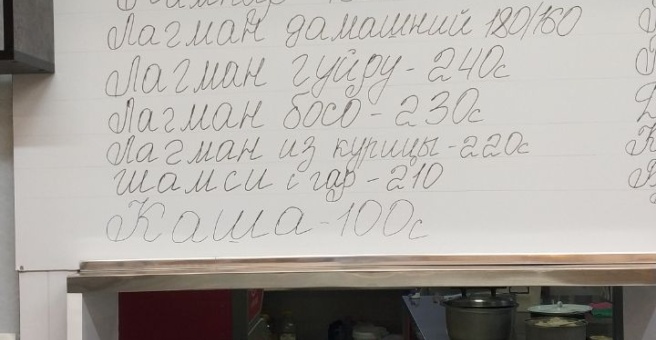 Лагман дамашний 180/160
Лагман гуйру - 240с
Лагман босо - 230с
Лагман из курицы - 220с
шамси с гар - 210
Каша - 100с